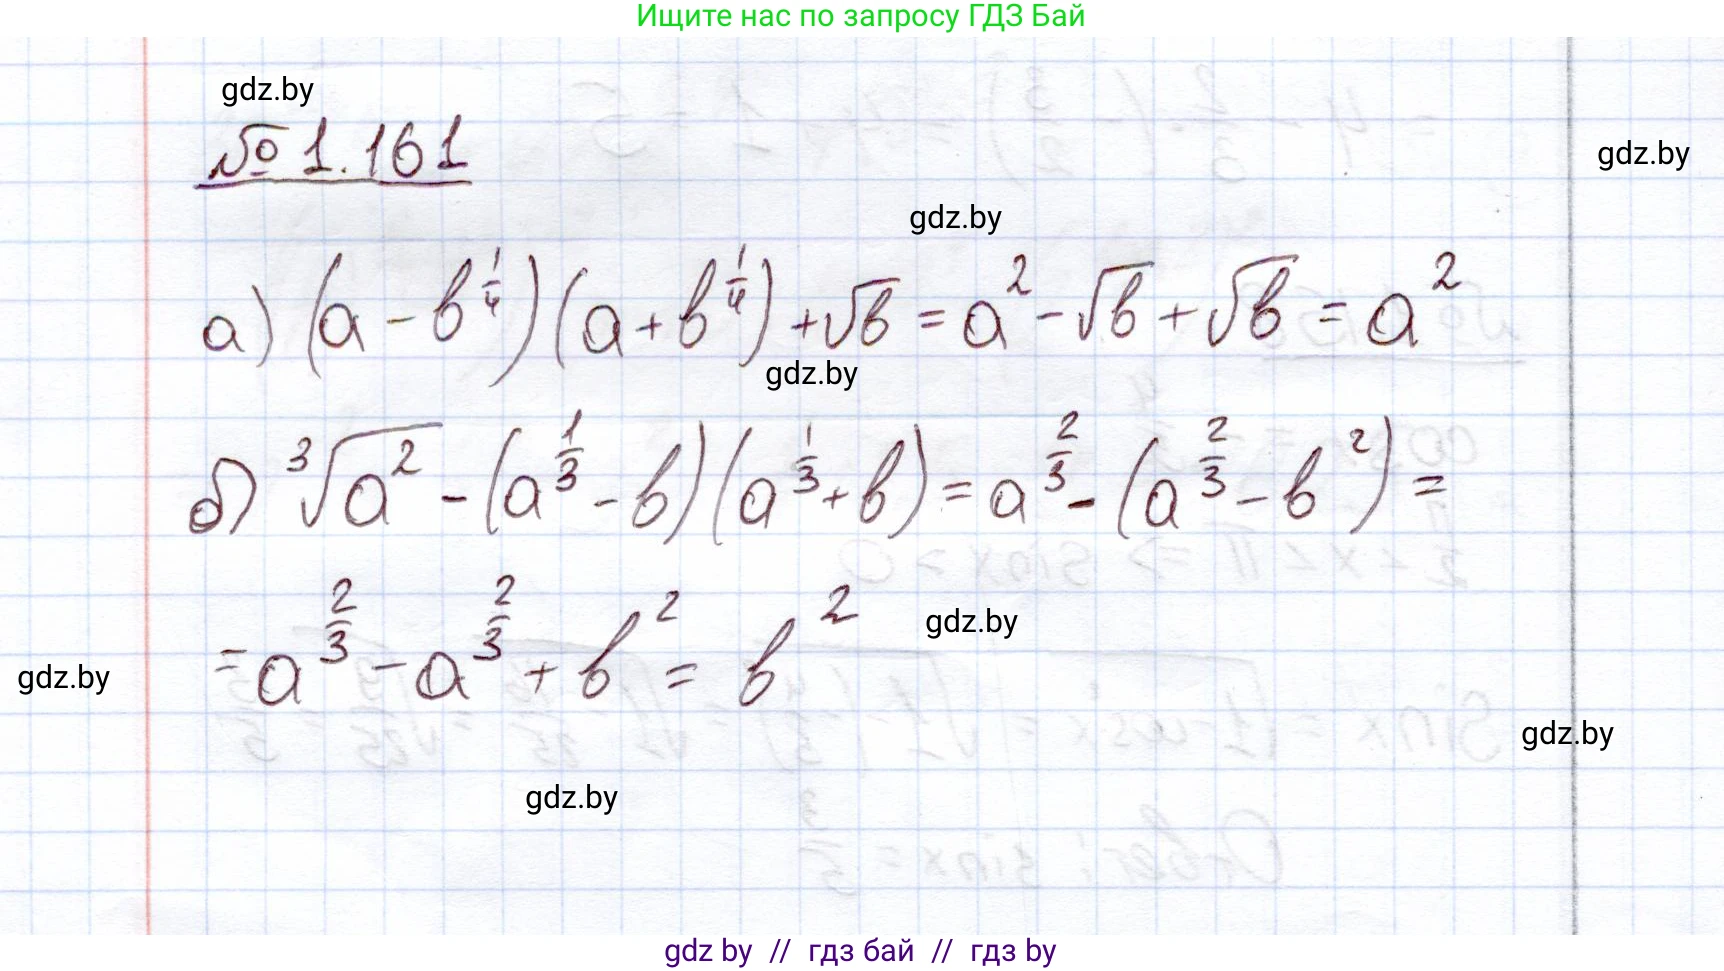 Ищите нас по запросу ГДЗ Бай
gdz.by
№ 1.161
gdz.by
gdz.by
а) (a - b^{1/4})(a + b^{1/4}) + √b = a² - √b + √b = a²
gdz.by
б) ∛a² - (a^{1/3} - b)(a^{1/3} + b) = a^{2/3} - (a^{2/3} - b²) =
= a^{2/3} - a^{2/3} + b² = b²
gdz.by
gdz.by
gdz.by
gdz.by
gdz by // гдз бай // гдз by